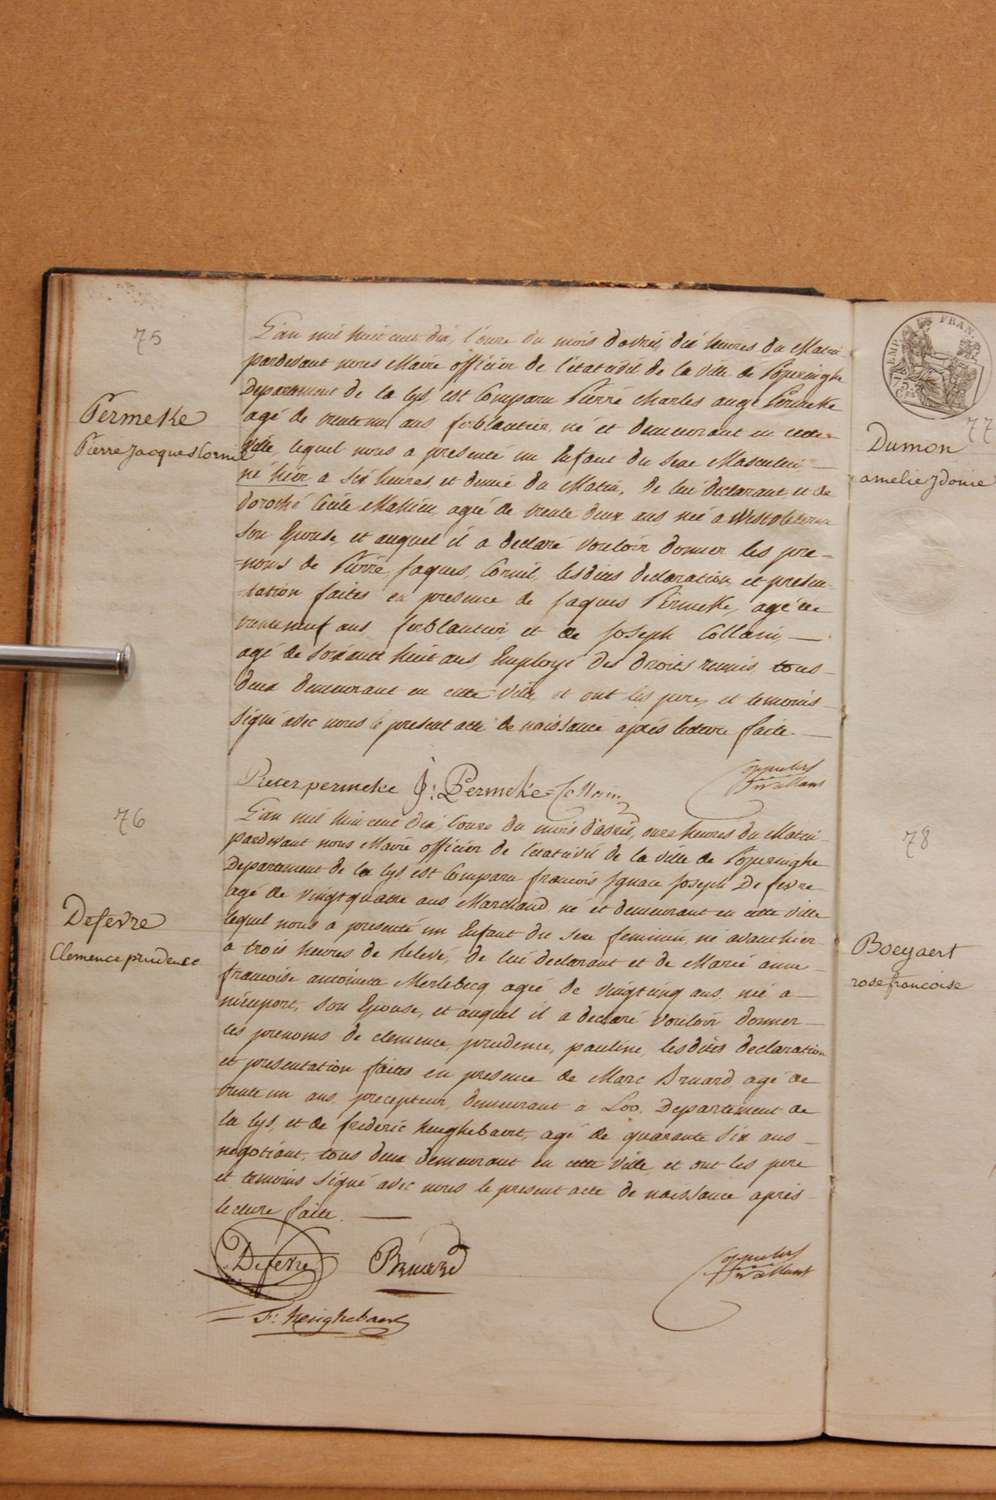 75
Permeke
Pierre Jacques Cornil
L'an mil huit cent dix, l'onze du mois d'avril, dix heures du Matin
pardevant nous Maire officier de l'état civil de la ville de Poperinghe
Departement de la Lys, est Comparu Pierre Charles Permeke
agé de trente un ans ferblantier, né et demeurant en cette
Ville, lequel nous a presenté un Enfant du sexe Masculin
né hier a six heures et demie du Matin, de lui declarant et de
Dorothé Cécile Mahieu agée de trente deux ans née a
son Epouse et auquel il a declaré vouloir donner les pre-
noms de Pierre, Jaques, Cornil, lesdites declaration et presen-
tation faites en presence de Jaques Permeke, agé de
trente neuf ans ferblantier, et de Joseph Collain
agé de soixante huit ans Employé des Droits reunis tous
deux demeurant en cette ville, et ont les pere, et temoins
signé avec nous le present acte de naissance après lecture faite.
Pieter permeke J: Permeke Collain
76
Defevre
Clemence prudence
L'an mil huit cent dix, l'onze du mois d'avril, onze heures du Matin
pardevant nous Maire officier de l'etat civil de la ville de Poperinghe
Departement de la Lys est Comparu francois Ignace Joseph Defevre
agé de vingt quatre ans Marchand né et demeurant en cette ville
lequel nous a presenté un Enfant du sexe feminin, né avant hier
a trois heures de relevé, de lui declarant et de Marie anne
francoise antoinette Merlebecq agée de vingt cinq ans, née a
nieuport, son Epouse, et auquel il a declaré vouloir donner
les prenoms de clemence, prudence, pauline, lesdites declaration
et presentation faites en presence de Marc Bruard, agé de
trente un ans, precepteur, demeurant a Loo, Departement de
la Lys, et de frederic heughebaert, agé de quarante six ans
negotiant, tous deux demeurant en cette ville et ont les pere
et temoins signé avec nous le present acte de naissance après
lecture faite.
Defevre Bruard
F: heughebaert
77
Dumon
amelie Idonie
78
Boeyaert
rose francoise